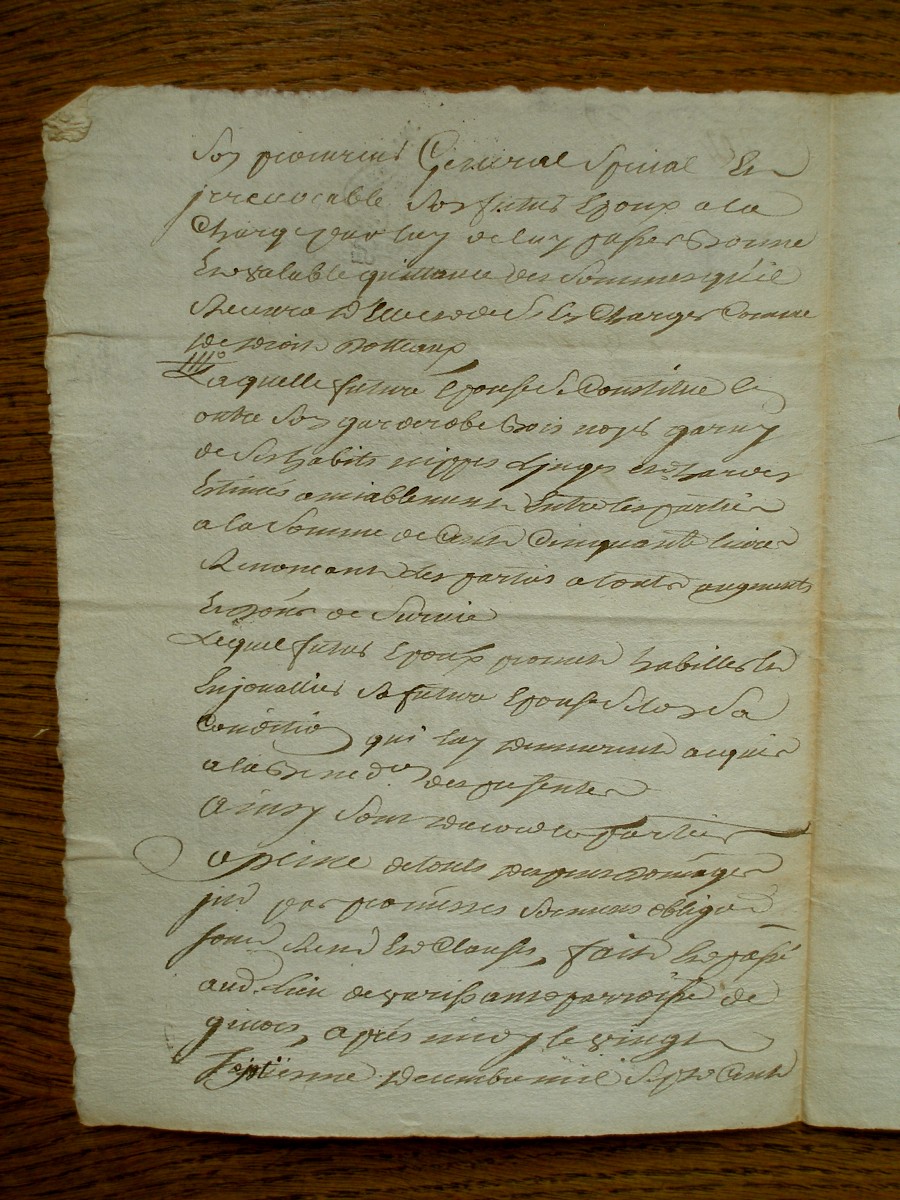 Son procureur General Special Et
jrrevocable Son futur Epoux a la
Charge par luy de luy passer Bonne
Et valable quittance des Sommes qu'il
Recevra D'Elle et de Ses Charges Comme
de Droit Dotteaux
Laquelle future Epouse Se Constitue
outre Son garderobe Bois noyer garny
de Ses habits nippes Linges et hardes
Estimés amiablement Entre les parties
a la Somme de Cent Cinquante livres
Renoncant les parties a touts augments
Et Gains de Survie
Lequel futur Epoux promet habiller Et
Enjouallier Sa future Epouse Selon Sa
Condition qui luy demeurent acquis
a la des presentes
Ainsy Sont D'accord les parties
a peine de touts Depens Domages
par promesses Serments obligaõn
Soum Renõn Et Clauses, fait Et passé
aud. Lieu de parroisse de
, apres midy le vingt
Septieme Decembre mil Sept Cent